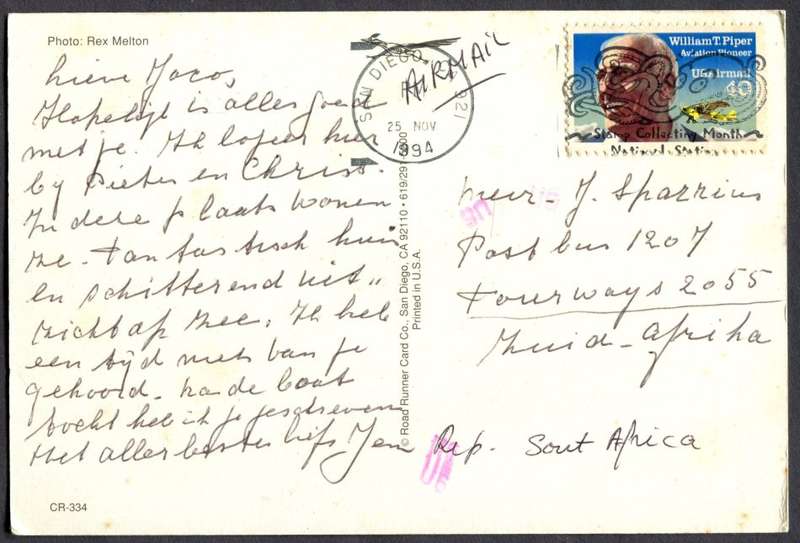 Photo: Rex Melton
Lieve Jaco,
Hopelijk is alles goed
met je. Ik logeer hier
by Pieter en Christ.
In deze plaats wonen
ze. Fantastisch huis
en schitterend uit"
zicht op zee. Ik heb
een tijd niets van je
gehoord. Na de boot
tocht heb ik je geschreven
Het allerbeste liefs Jen
CR-334
© Road Runner Card Co., San Diego, CA 92110 • 619/291-
Printed in U.S.A.
SAN DIEGO, 921
25 NOV
1994
AIRMAIL
William T. Piper
Aviation Pioneer
USAirmail
40
Stamp Collecting Month
National Station
Meer J. Sparrius
Postbus 1207
Fourways 2055
Zuid-Afrika
Rep. Sout Africa